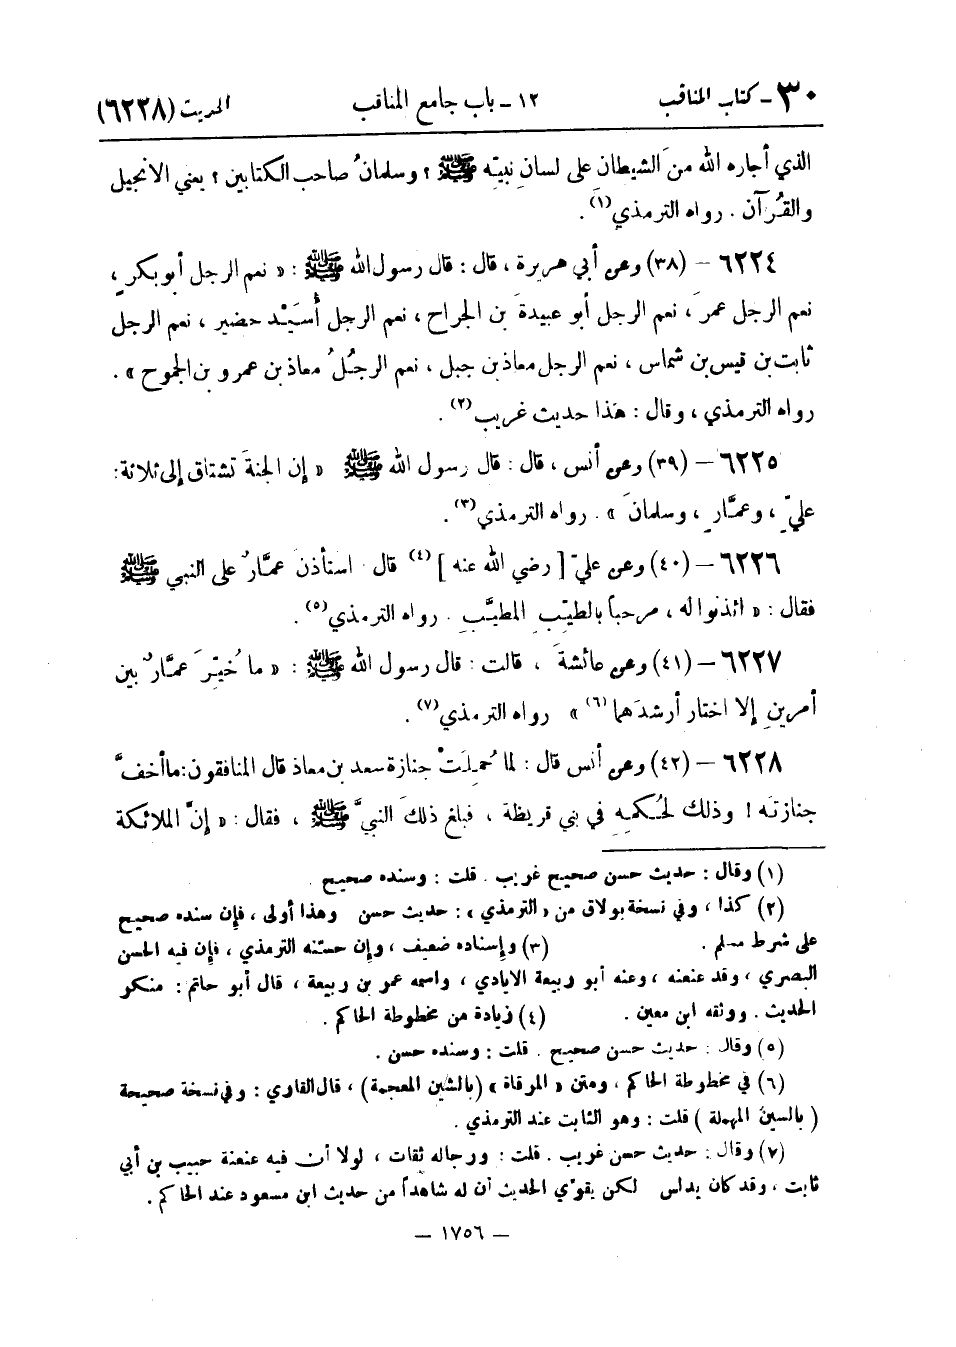 ٣٠ - كتاب المناقب ١٢ - باب جامع المناقب الحديث (٦٢٢٨)
الذي أجاره الله منَ الشيطان على لسان نبيّه ﷺ ؟ وسلمانُ صاحب الكتابين ؟ يعني الانجيل
والقُرآن . رواه الترمذي(١) .
٦٢٢٤ - (٣٨) وعن أبي هريرة ، قال : قال رسول الله ﷺ : « نعم الرجل أبو بكر ،
نعم الرجل عمرَ ، نعم الرجل أبو عبيدةَ بن الجراح ، نعم الرجل أُسَيْد حضير ، نعم الرجل
ثابت بن قيس بن شماس ، نعم الرجل معاذ بن جبل ، نعم الرجُلُ معاذ بن عمرو بن الجموح » .
رواه الترمذي ، وقال : هَذا حديث غريب(٢) .
٦٢٢٥ - (٣٩) وعن أنس ، قال : قال رسول الله ﷺ « إن الجنةَ تشتاق إلى ثلاثة :
عليّ ، وعمَّارٍ ، وسلمانَ » . رواه الترمذي(٣) .
٦٢٢٦ - (٤٠) وعن عليّ [ رضي الله عنه ](٤) قال . استأذن عمَّارٌ على النبي ﷺ
فقال : « ائذنوا له ، مرحباً بالطيّبِ المطيَّبِ . رواه الترمذي(٥) .
٦٢٢٧ - (٤١) وعن عائشةَ ، قالت : قال رسول الله ﷺ : « ما خُيّرَ عمَّارٌ بين
أمرينِ إلا اختار أرشدَهما(٦) » رواه الترمذي(٧) .
٦٢٢٨ - (٤٢) وعن أنس قال : لما حُملَتْ جنازة سعد بن معاذ قال المنافقون : ما أخفَّ
جنازتَه ! وذلك لحُكمِه في بني قريظة ، فبلغ ذلكَ النبيَّ ﷺ ، فقال : « إنَّ الملائكة
(١) وقال : حديث حسن صحيح غريب . قلت : وسنده صحيح .
(٢) كذا ، وفي نسخة بولاق من « الترمذي » : حديث حسن وهذا أولى ، فإن سنده صحيح
على شرط مسلم . (٣) وإسناده ضعيف ، وإن حسّنه الترمذي ، فإن فيه الحسن
البصري ، وقد عنعنه ، وعنه أبو ربيعة الايادي ، واسمه عمر بن ربيعة ، قال أبو حاتم : منكر
الحديث . ووثقه ابن معين . (٤) زيادة من مخطوطة الحاكم .
(٥) وقال : حديث حسن صحيح . قلت : وسنده حسن .
(٦) في مخطوطة الحاكم ، ومتن « المرقاة » (بالشين المعجمة) ، قال القاري : وفي نسخة صحيحة
( بالسين المهملة ) قلت : وهو الثابت عند الترمذي .
(٧) وقال : حديث حسن غريب . قلت : ورجاله ثقات ، لولا أن فيه عنعنة حبيب بن أبي
ثابت ، وقد كان يدلس لكن يقوّي الحديث أن له شاهداً من حديث ابن مسعود عند الحاكم .
— ١٧٥٦ —